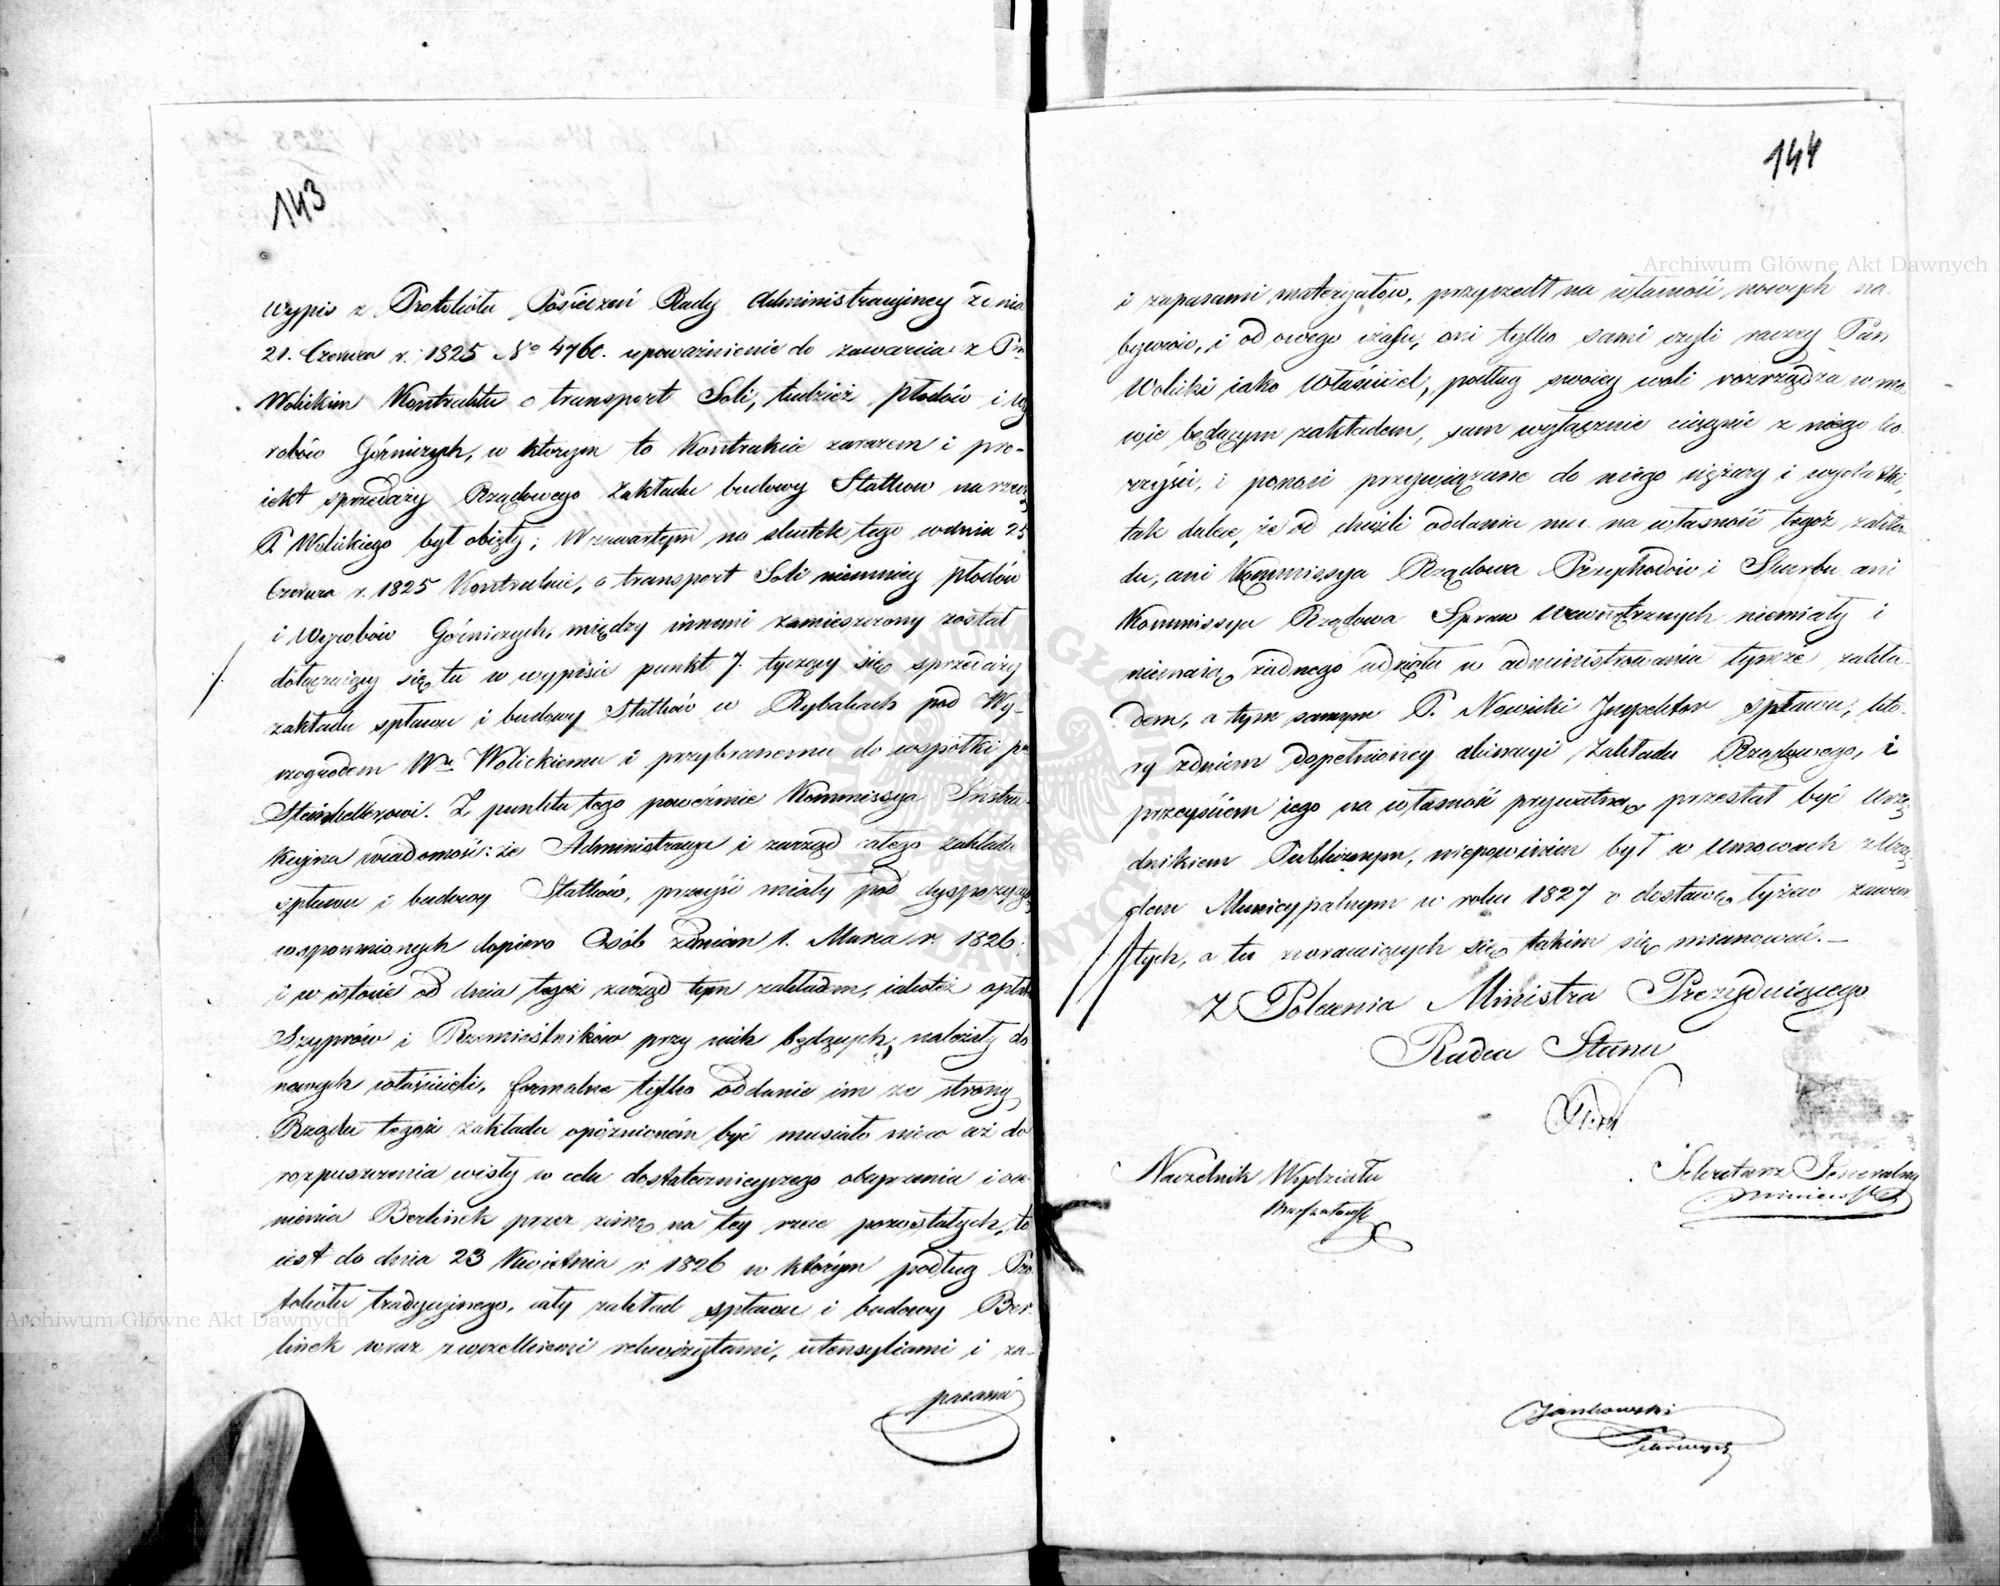 143
Wypis z Protokółu Posiedzeń Rady Administracyiney z dnia
21. Czerwca r. 1825 No 4760. upoważnienie do zawarcia z Pm
Wolickim Kontraktu o transport Soli, tudzież płodów i wy
robów Górniczych, w którym to Kontrakcie zarazem i pro-
iekt sprzedaży Rządowego Zakładu budowy Statkow na rzecz
P. Wolickiego był obięty; W zawartym na skutek tego w dniu 25
Czerwca r. 1825 Kontrakcie, o transport Soli niemniey płodów
i Wyrobów Górniczych, między innemi zamieszczony został
dołączaiący się tu w wypisie punkt 7. tyczący się sprzedaży
zakładu spławu i budowy Statków w Rybakach pod Wy-
szogrodem Wu Wolickiemu i przybranemu do wspólki p
Steinkellerowi. Z punktu tego poweźmie Kommissya Instru-
kcyina wiadomość: że Administracya i zarząd całego zakładu
spławu i budowy Statków, przeyść miały pod dyspozycyą
wspomnionych dopiero Osób z dniem 1. Marca r. 1826.
i w istocie od dnia tegoż zarząd tym zakładem, iakoteż opłat
Szyprów i Rzemieślników przy nich będących, należały do
nowych właścicieli, formalne tylko oddanie im ze strony
Rządu tegoż zakładu opóźnionem być musiało nieco aż do
rozpuszczenia wisły w celu dostatecznieyszego obeyrzenia i oce
nienia Berlinek przez zimę na tey rzece pozostałych, to
iest do dnia 23 Kwietnia r. 1826 w którym podług Pro
tokółu tradycyinego, cały zakład spławu i budowy Ber
linek wraz z wszelkiemi rekwizytami, utensyliami i za-
pasami
144
i zapasami materyałów, przyszedł na własność nowych na
bywców, i od owego czasu, oni tylko sami czyli raczey Pan
Wolicki iako Właściciel, podług swoiey woli rozrządza w mo
wie będącym zakładem, sam wyłącznie ciągnie z niego ko
rzyści, i ponosi przywiązane do niego ciężary i wydatki,
tak dalece, że od chwili oddania mu na własność tegoż zakła
du, ani Kommissya Rządowa Przychodów i Skarbu ani
Kommissya Rządowa Spraw Wewnętrznych niemiały i
niemaią żadnego udziału w administrowaniu tymże zakła-
dem, a tym samym P. Nowicki Inspektor spławu, któ-
ry z dniem dopełnioney alienacyi Zakładu Rządowego, i
przeyściem iego na własność prywatną przestał być Urzę
dnikiem Publicznym, niepowinien był w Umowach z Urzę
dem Municypalnym w roku 1827 o dostawę tyżew zawar
tych, a tu zwracaiących się takim się mianować.—
Z Polecenia Ministra Prezyduiącego
Radca Stanu
Naczelnik Wydziału
Sekretarz Jeneralny
Jankowski